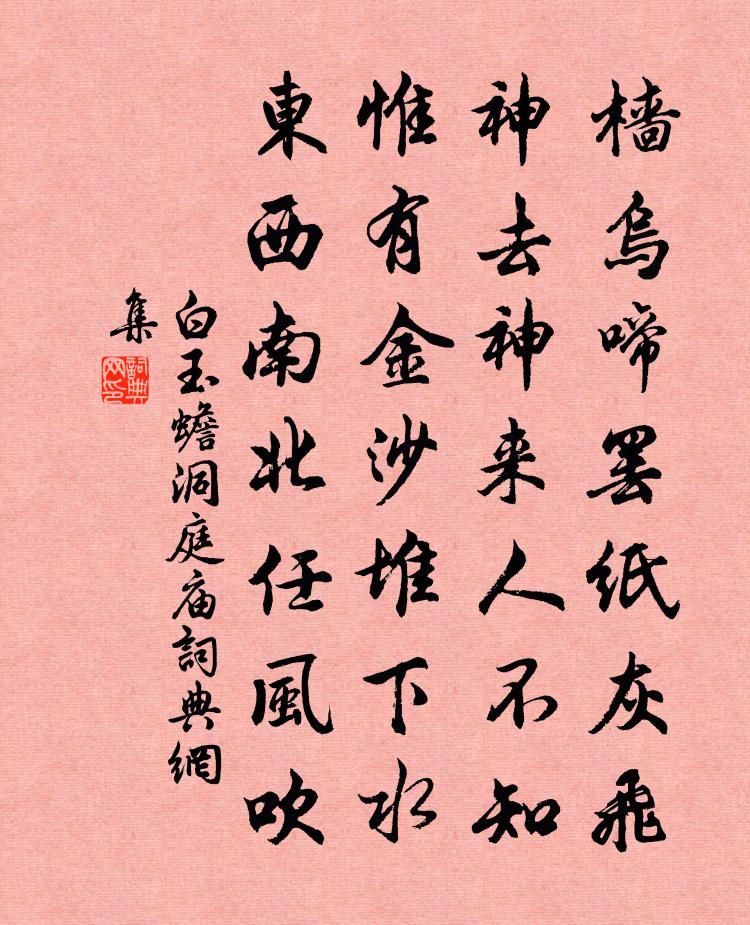 檣烏啼罷紙灰飛
神去神来人不知
惟有金沙堆下水
東西南北任風吹
白玉蟾洞庭庙詞典網
集
詞典网印